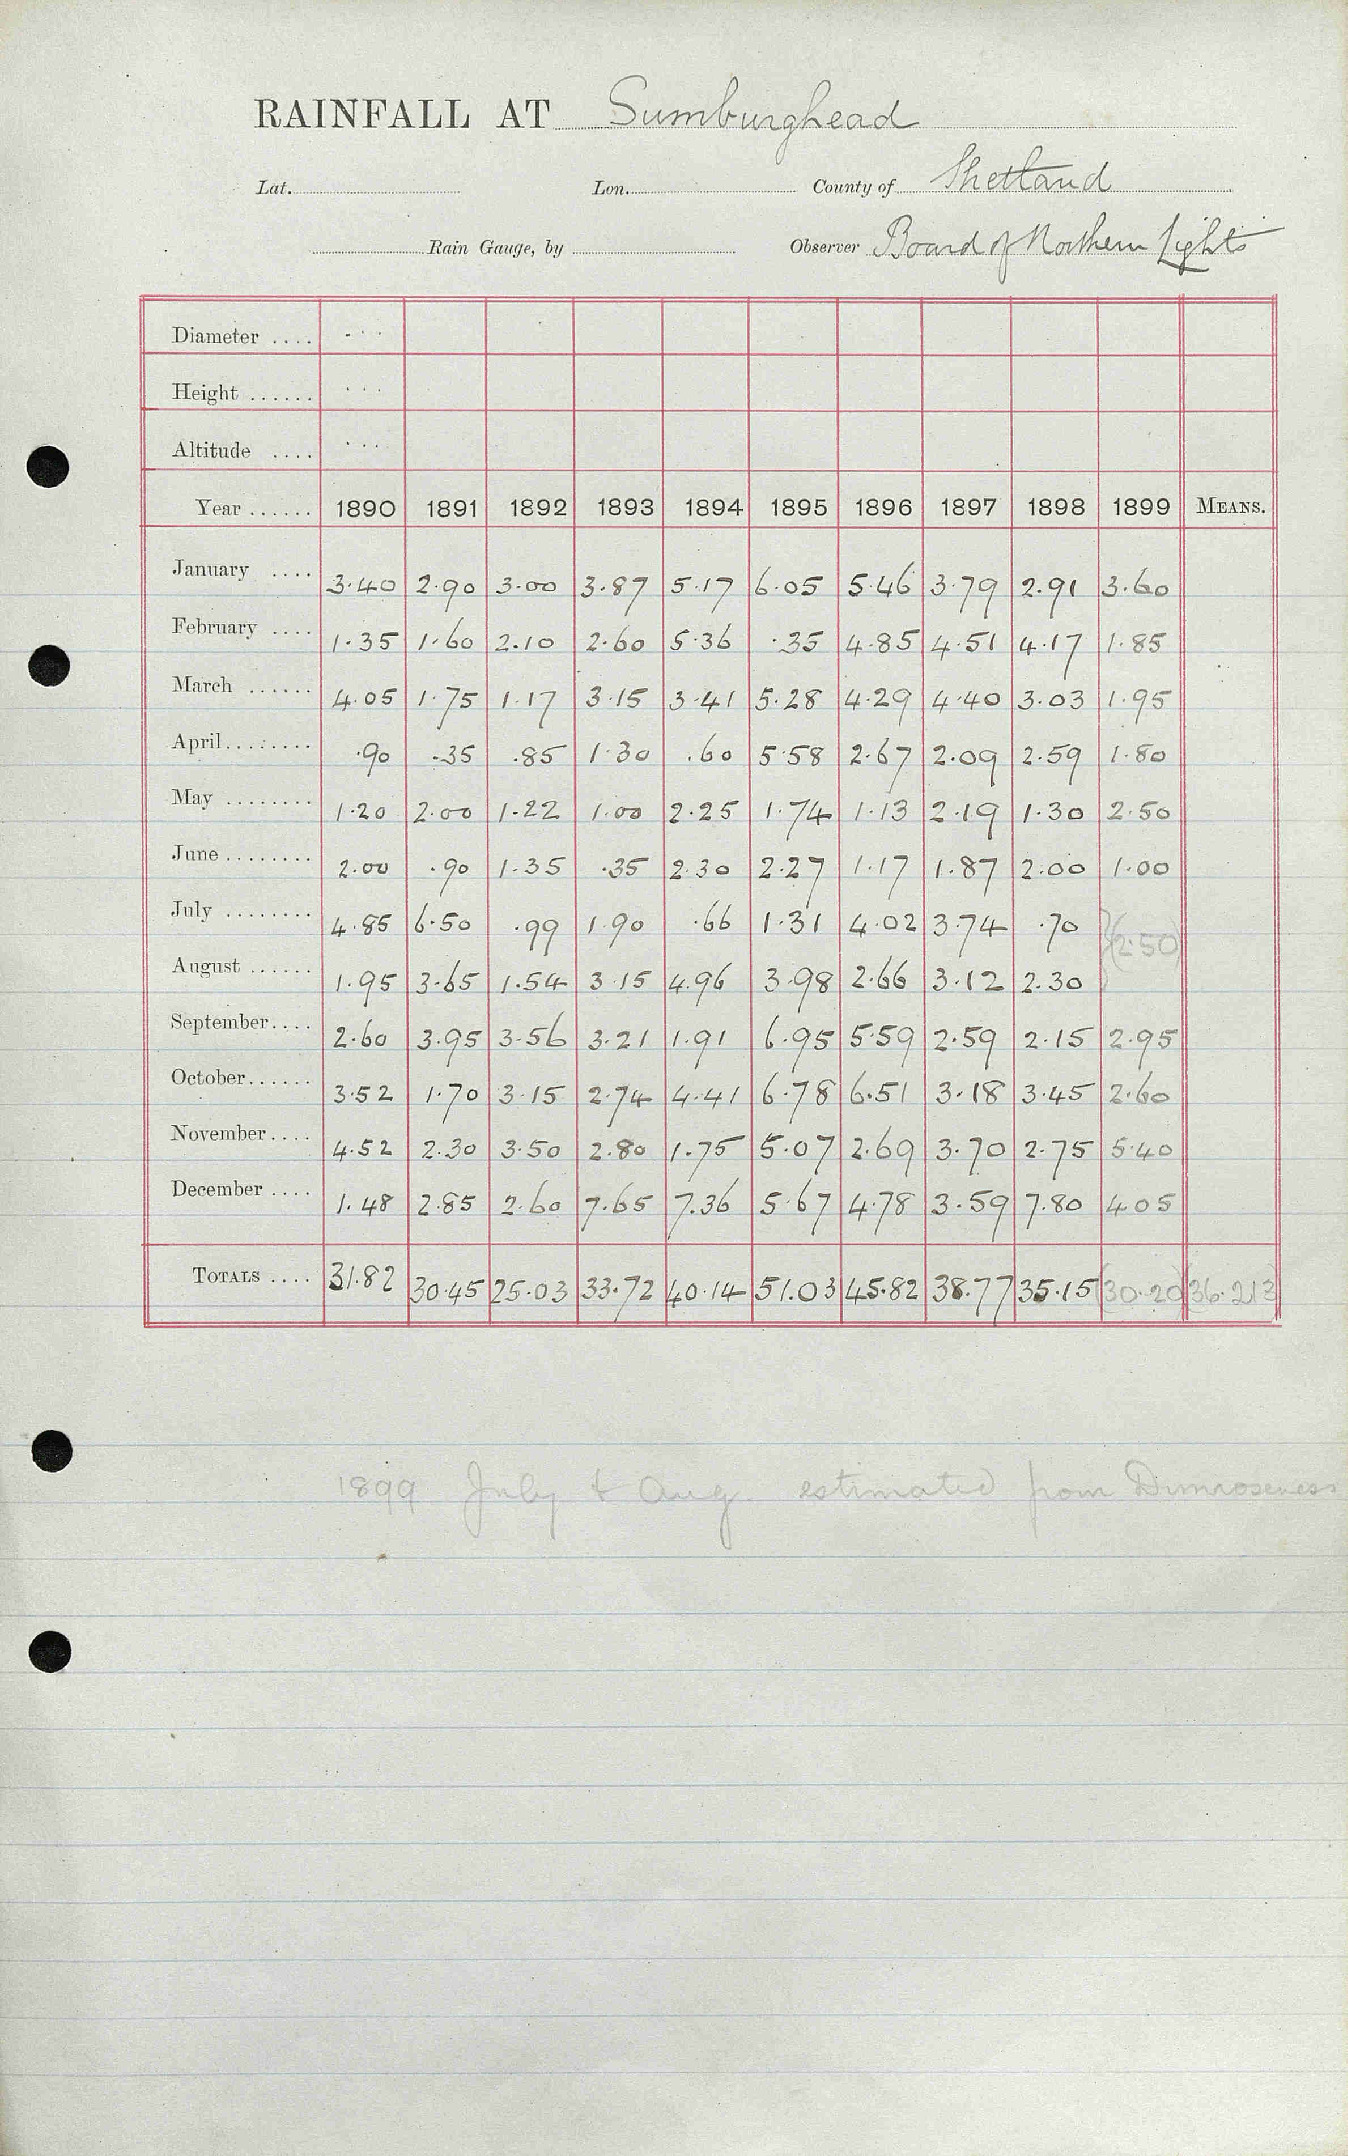 RAINFALL AT Sumburghead
Lat. Lon. County of Shetland
Rain Gauge, by Observer Board of Northern Lights
Diameter ....
Height ......
Altitude ....
Year ...... 1890 1891 1892 1893 1894 1895 1896 1897 1898 1899 MEANS.
January .... 3.40 2.90 3.00 3.87 5.17 6.05 5.46 3.79 2.91 3.60
February .... 1.35 1.60 2.10 2.60 5.36 .35 4.85 4.51 4.17 1.85
March ...... 4.05 1.75 1.17 3.15 3.41 5.28 4.29 4.40 3.03 1.95
April........ .90 .35 .85 1.30 .60 5.58 2.67 2.09 2.59 1.80
May ........ 1.20 2.00 1.22 1.00 2.25 1.74 1.13 2.19 1.30 2.50
June ........ 2.00 .90 1.35 .35 2.30 2.27 1.17 1.87 2.00 1.00
July ........ 4.85 6.50 .99 1.90 .66 1.31 4.02 3.74 .70 }(2.50)
August ...... 1.95 3.65 1.54 3.15 4.96 3.98 2.66 3.12 2.30
September.... 2.60 3.95 3.56 3.21 1.91 6.95 5.59 2.59 2.15 2.95
October...... 3.52 1.70 3.15 2.74 4.41 6.78 6.51 3.18 3.45 2.60
November.... 4.52 2.30 3.50 2.80 1.75 5.07 2.69 3.70 2.75 5.40
December .... 1.48 2.85 2.60 7.65 7.36 5.67 4.78 3.59 7.80 4.05
TOTALS .... 31.82 30.45 25.03 33.72 40.14 51.03 45.82 38.77 35.15 (30.20) (36.213)
1899 July & Aug. estimated from Dunrossness